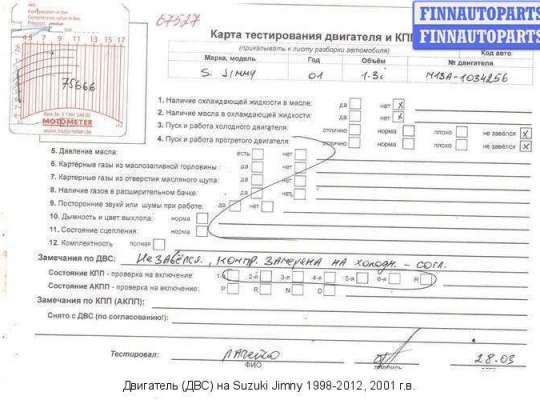 FINNAUTOPARTS
FINNAUTOPARTS
67527
Карта тестирования двигателя и КПП
(прикалывать к листу разборки автомобиля)
Код авто
Марка, модель Год Объём № двигателя
S. Jimny 01 1.3i M13A-1034256
75666
MOTOMETER
1. Наличие охлаждающей жидкости в масле: да нет X
2. Наличие масла в охлаждающей жидкости: да нет X
3. Пуск и работа холодного двигателя: отлично норма плохо не завёлся X
4. Пуск и работа прогретого двигателя: отлично норма плохо не завёлся
5. Давление масла: есть нет
6. Картерные газы из маслозаливной горловины: да нет
7. Картерные газы из отверстия масляного щупа: да нет
8. Наличие газов в расширительном бачке: да нет
9. Посторонние звуки или шумы при работе: да нет
10. Дымность и цвет выхлопа: норма
11. Состояние сцепления: норма
12. Комплектность полная
Замечания по ДВС: Не завёлся, контр. замочка на холодн - согл.
Состояние КПП - проверка на включение: 1-я 2-я 3-я 4-я 5-я 6-я R
Состояние АКПП - проверка на включение: P R N D
Замечания по КПП (АКПП):
Снято с ДВС (по согласованию!):
Тестировал: 28.03
ФИО
Двигатель (ДВС) на Suzuki Jimny 1998-2012, 2001 г.в.